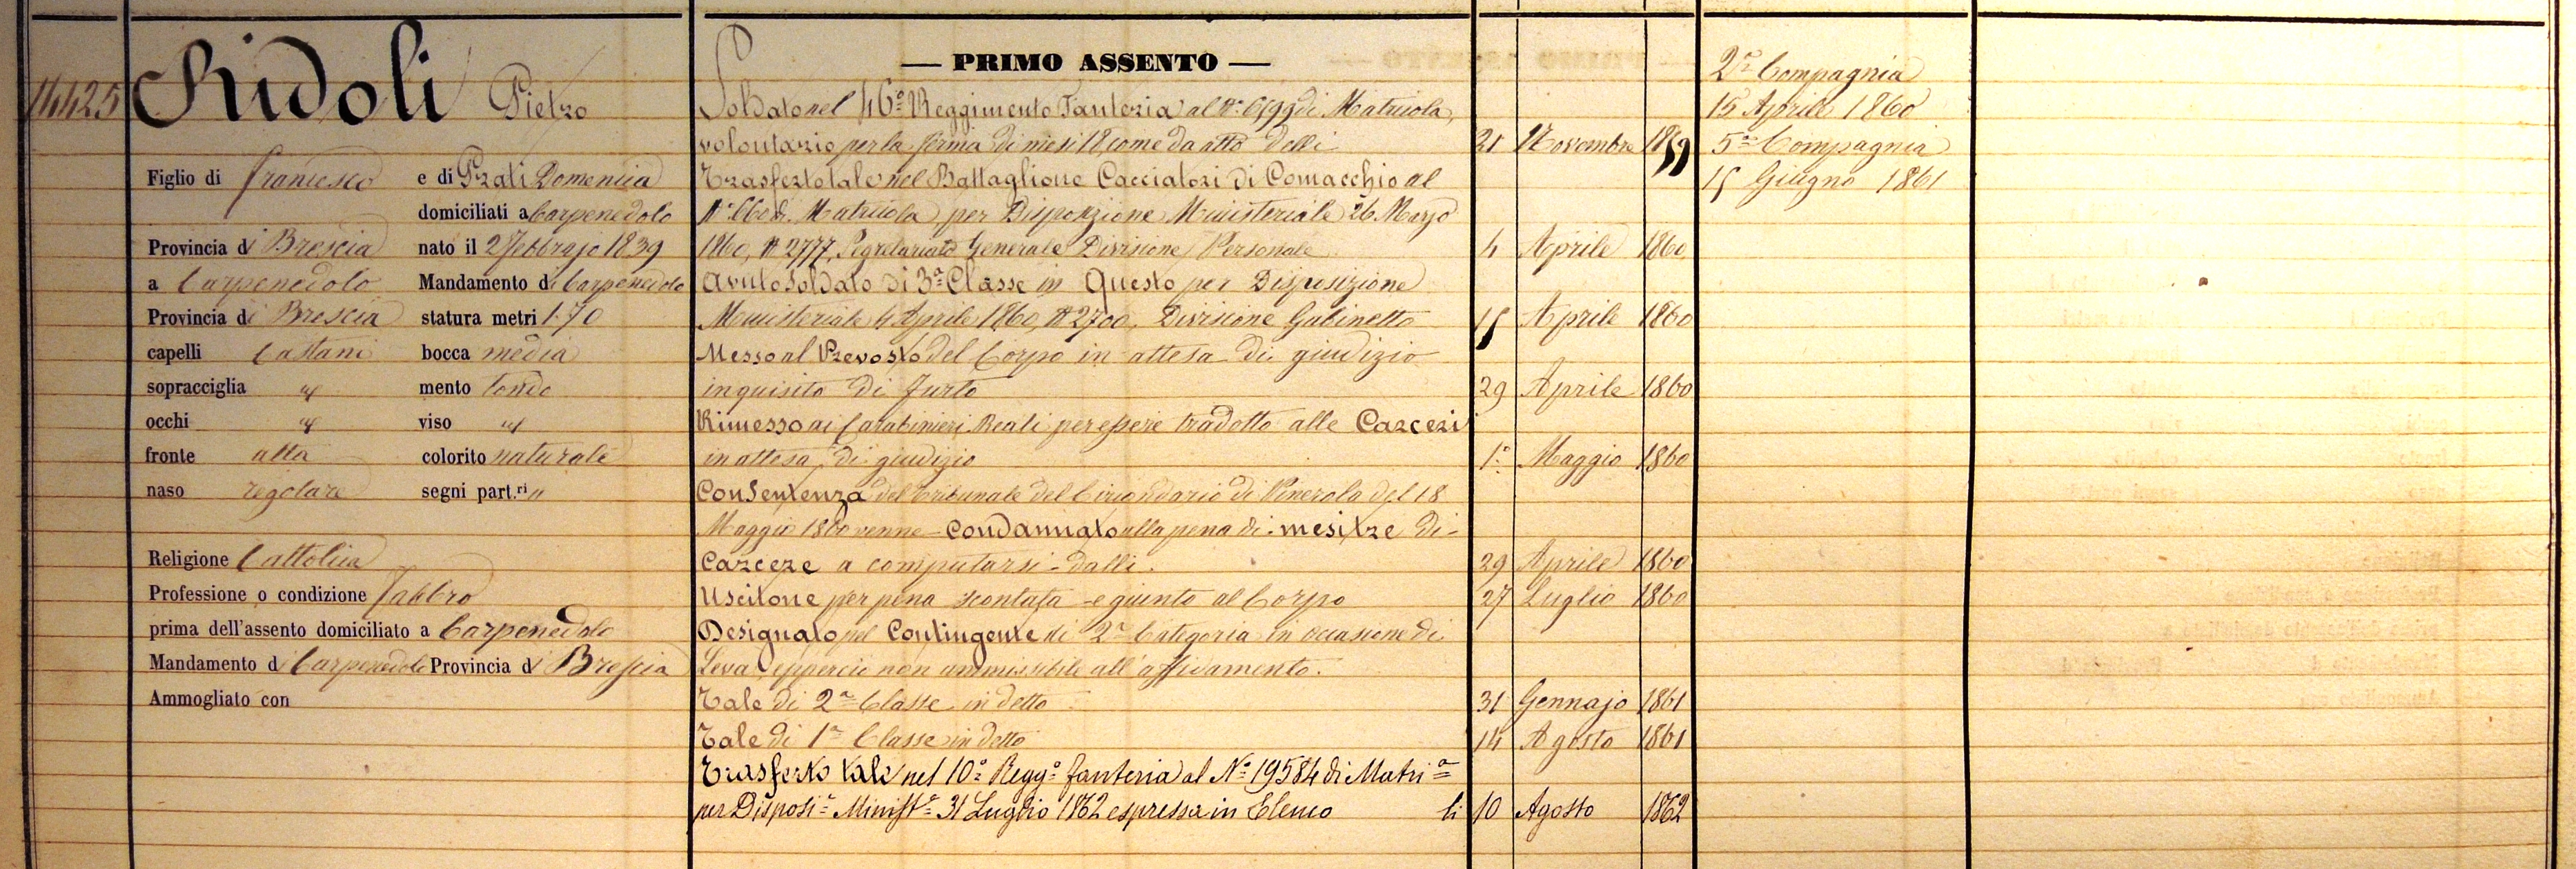 14425 Ridoli Pietro
Figlio di Francesco e di Prati Domenica
domiciliati a Carpenedolo
Provincia di Brescia nato il 2 Febbrajo 1839
a Carpenedolo Mandamento di Carpenedolo
Provincia di Brescia statura metri 1.70
capelli Castani bocca media
sopracciglia " mento tondo
occhi " viso "
fronte alta colorito naturale
naso regolare segni part.ri "
Religione Cattolica
Professione o condizione Fabbro
prima dell'assento domiciliato a Carpenedolo
Mandamento di Carpenedolo Provincia di Brescia
Ammogliato con
— PRIMO ASSENTO —
Soldato nel 46º Reggimento Fanteria al Nº 6599 di Matricola,
volontario per la ferma di mesi 18, come da atto delli 21 Novembre 1859
Trasferto tale nel Battaglione Cacciatori di Comacchio al
Nº 660 di Matricola per Disposizione Ministeriale 26 Marzo
1860, Nº 2777, Segretariato Generale Divisione Personale 4 Aprile 1860
Avuto Soldato di 3ª Classe in Questo per Disposizione
Ministeriale 4 Aprile 1860, Nº 2700, Divisione Gabinetto 15 Aprile 1860
Messo al Prevosto del Corpo in attesa di giudizio
inquisito di Furto 29 Aprile 1860
Rimesso ai Carabinieri Reali per essere tradotto alle Carceri
in attesa di giudizio 1º Maggio 1860
Con Sentenza del Tribunale del Circondario di Pinerolo del 18
Maggio 1860 venne condannato alla pena di mesi tre di
Carcere a computarsi dalli 29 Aprile 1860
Uscitone per pena scontata e giunto al Corpo 27 Luglio 1860
Designato pel Contingente di 2ª Categoria in occasione di
Leva eppercio non ammissibile all'affidamento.
Tale di 2ª Classe in detto 31 Gennajo 1861
Tale di 1ª Classe in detto 14 Agosto 1861
Trasferto tale nel 10º Reggº fanteria al Nº 19584 di Matriª
per Disposiª Ministª 31 Luglio 1862 espressa in Elenco li 10 Agosto 1862
2ª Compagnia
15 Aprile 1860
5ª Compagnia
15 Giugno 1861